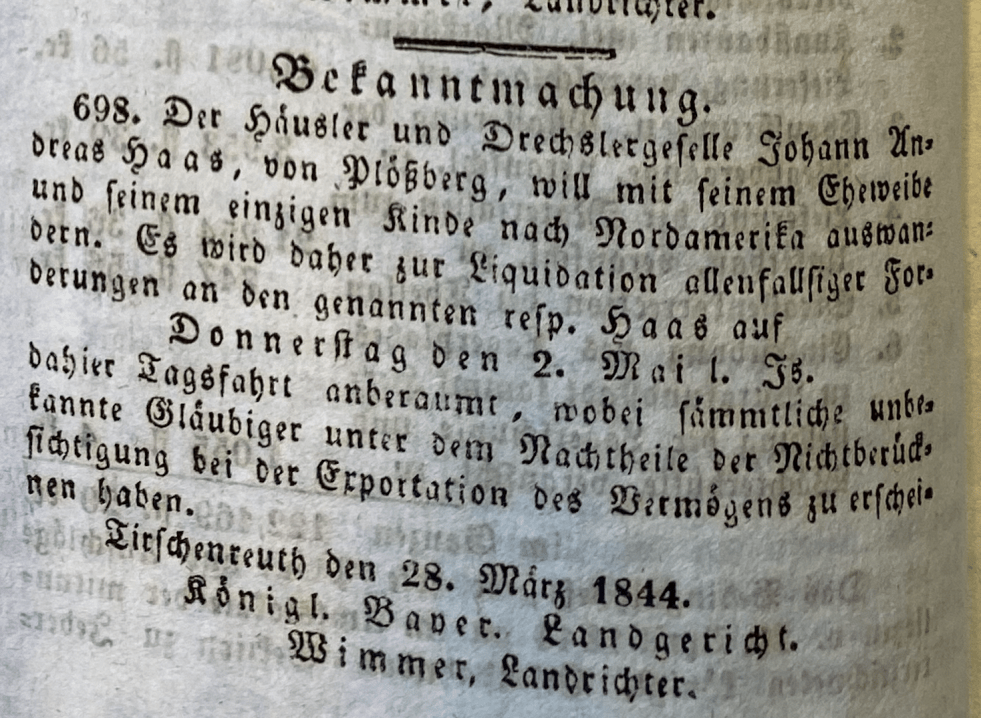 Landrichter.
Bekanntmachung.
698. Der Häusler und Drechslergeselle Johann An-
dreas Haas, von Plößberg, will mit seinem Eheweibe
und seinem einzigen Kinde nach Nordamerika auswan-
dern. Es wird daher zur Liquidation allenfallsiger For-
derungen an den genannten resp. Haas auf
Donnerstag den 2. Mai l. Js.
dahier Tagsfahrt anberaumt, wobei sämmtliche unbe-
kannte Gläubiger unter dem Nachtheile der Nichtberück-
sichtigung bei der Exportation des Vermögens zu erschei-
nen haben.
Tirschenreuth den 28. März 1844.
Königl. Bayer. Landgericht.
Wimmer, Landrichter.